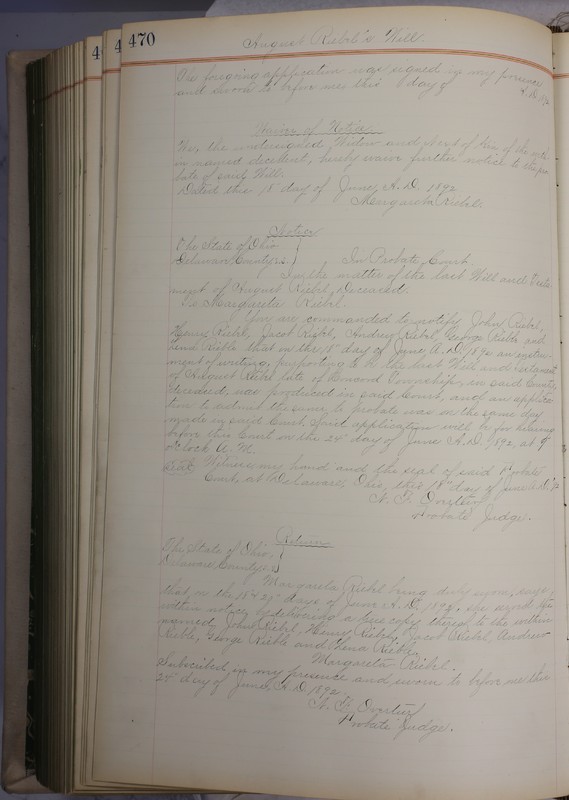 470
August Riebel's Will.
The foregoing application was signed in my presence
and sworn to before me this day of A.D. 189
Waiver of Notice
We, the undersigned, Widow and next of kin of the with-
in named decedent, hereby waive further notice to the pro-
bate of said Will.
Dated this 18" day of June, A.D. 1892
Margareta Riebel.
Notice
The State of Ohio
Delaware County, ss. } In Probate Court
In the matter of the last Will and Testa-
ment of August Riebel, Deceased.
To Margareta Riebel.
You are commanded to notify John Riebel,
Henry Riebel, Jacob Riebel, Andrew Riebel, George Riebel and
Riebel that on the 18" day of June A.D. 1892 an instru-
ment of writing, purporting to be the last Will and testament
of August Riebel late of Township, in said County
deceased, was produced in said Court, and an applica-
tion to admit the same to probate was on the same day
made in said Court. Said application will be for hearing
before this Court on the 24" day of June A.D. 1892, at 9
o'clock A.M.
Seal Witness my hand and the seal of said Probate
Court, at Delaware, Ohio, this 18" day of June A.D. '92
N. F. Overturf
Probate Judge.
Return
The State of Ohio,
Delaware County, ss }
Margareta Riebel being duly sworn, says
that on the 18 & 2 days of June A.D. 1892, she served the
within notice by delivering a true copy thereof to the within
named, John Riebel, Henry Riebel, Jacob Riebel, Andrew
Riebel, George Riebel and Riebel.
Margareta Riebel.
Subscribed in my presence and sworn to before me this
24" day of June, A.D. 1892.
N. F. Overturf
Probate Judge.